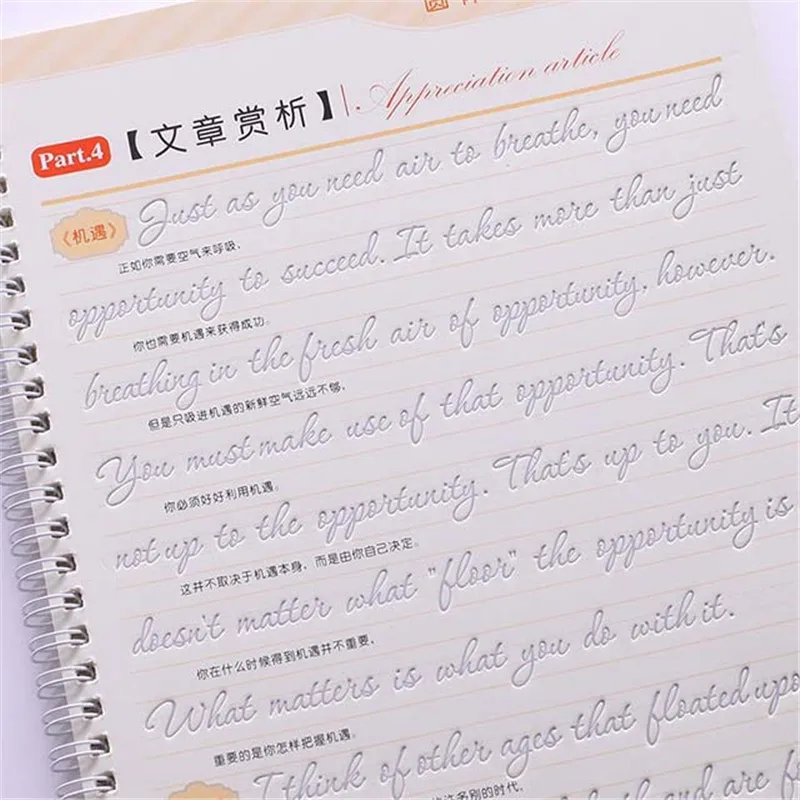 Part.4 【文章赏析】 Appreciation article
《机遇》 Just as you need air to breathe, you need
正如你需要空气来呼吸，
opportunity to succeed. It takes more than just
你也需要机遇来获得成功。
breathing in the fresh air of opportunity, however.
但是只吸进机遇的新鲜空气远远不够，
You must make use of that opportunity. That's
你必须好好利用机遇。
not up to the opportunity. That's up to you. It
这并不取决于机遇本身，而是由你自己决定。
doesn't matter what "floor" the opportunity is
你在什么时候得到机遇并不重要，
What matters is what you do with it.
重要的是你怎样把握机遇。
I think of other ages that floated upo
多名别的时代，
and are f